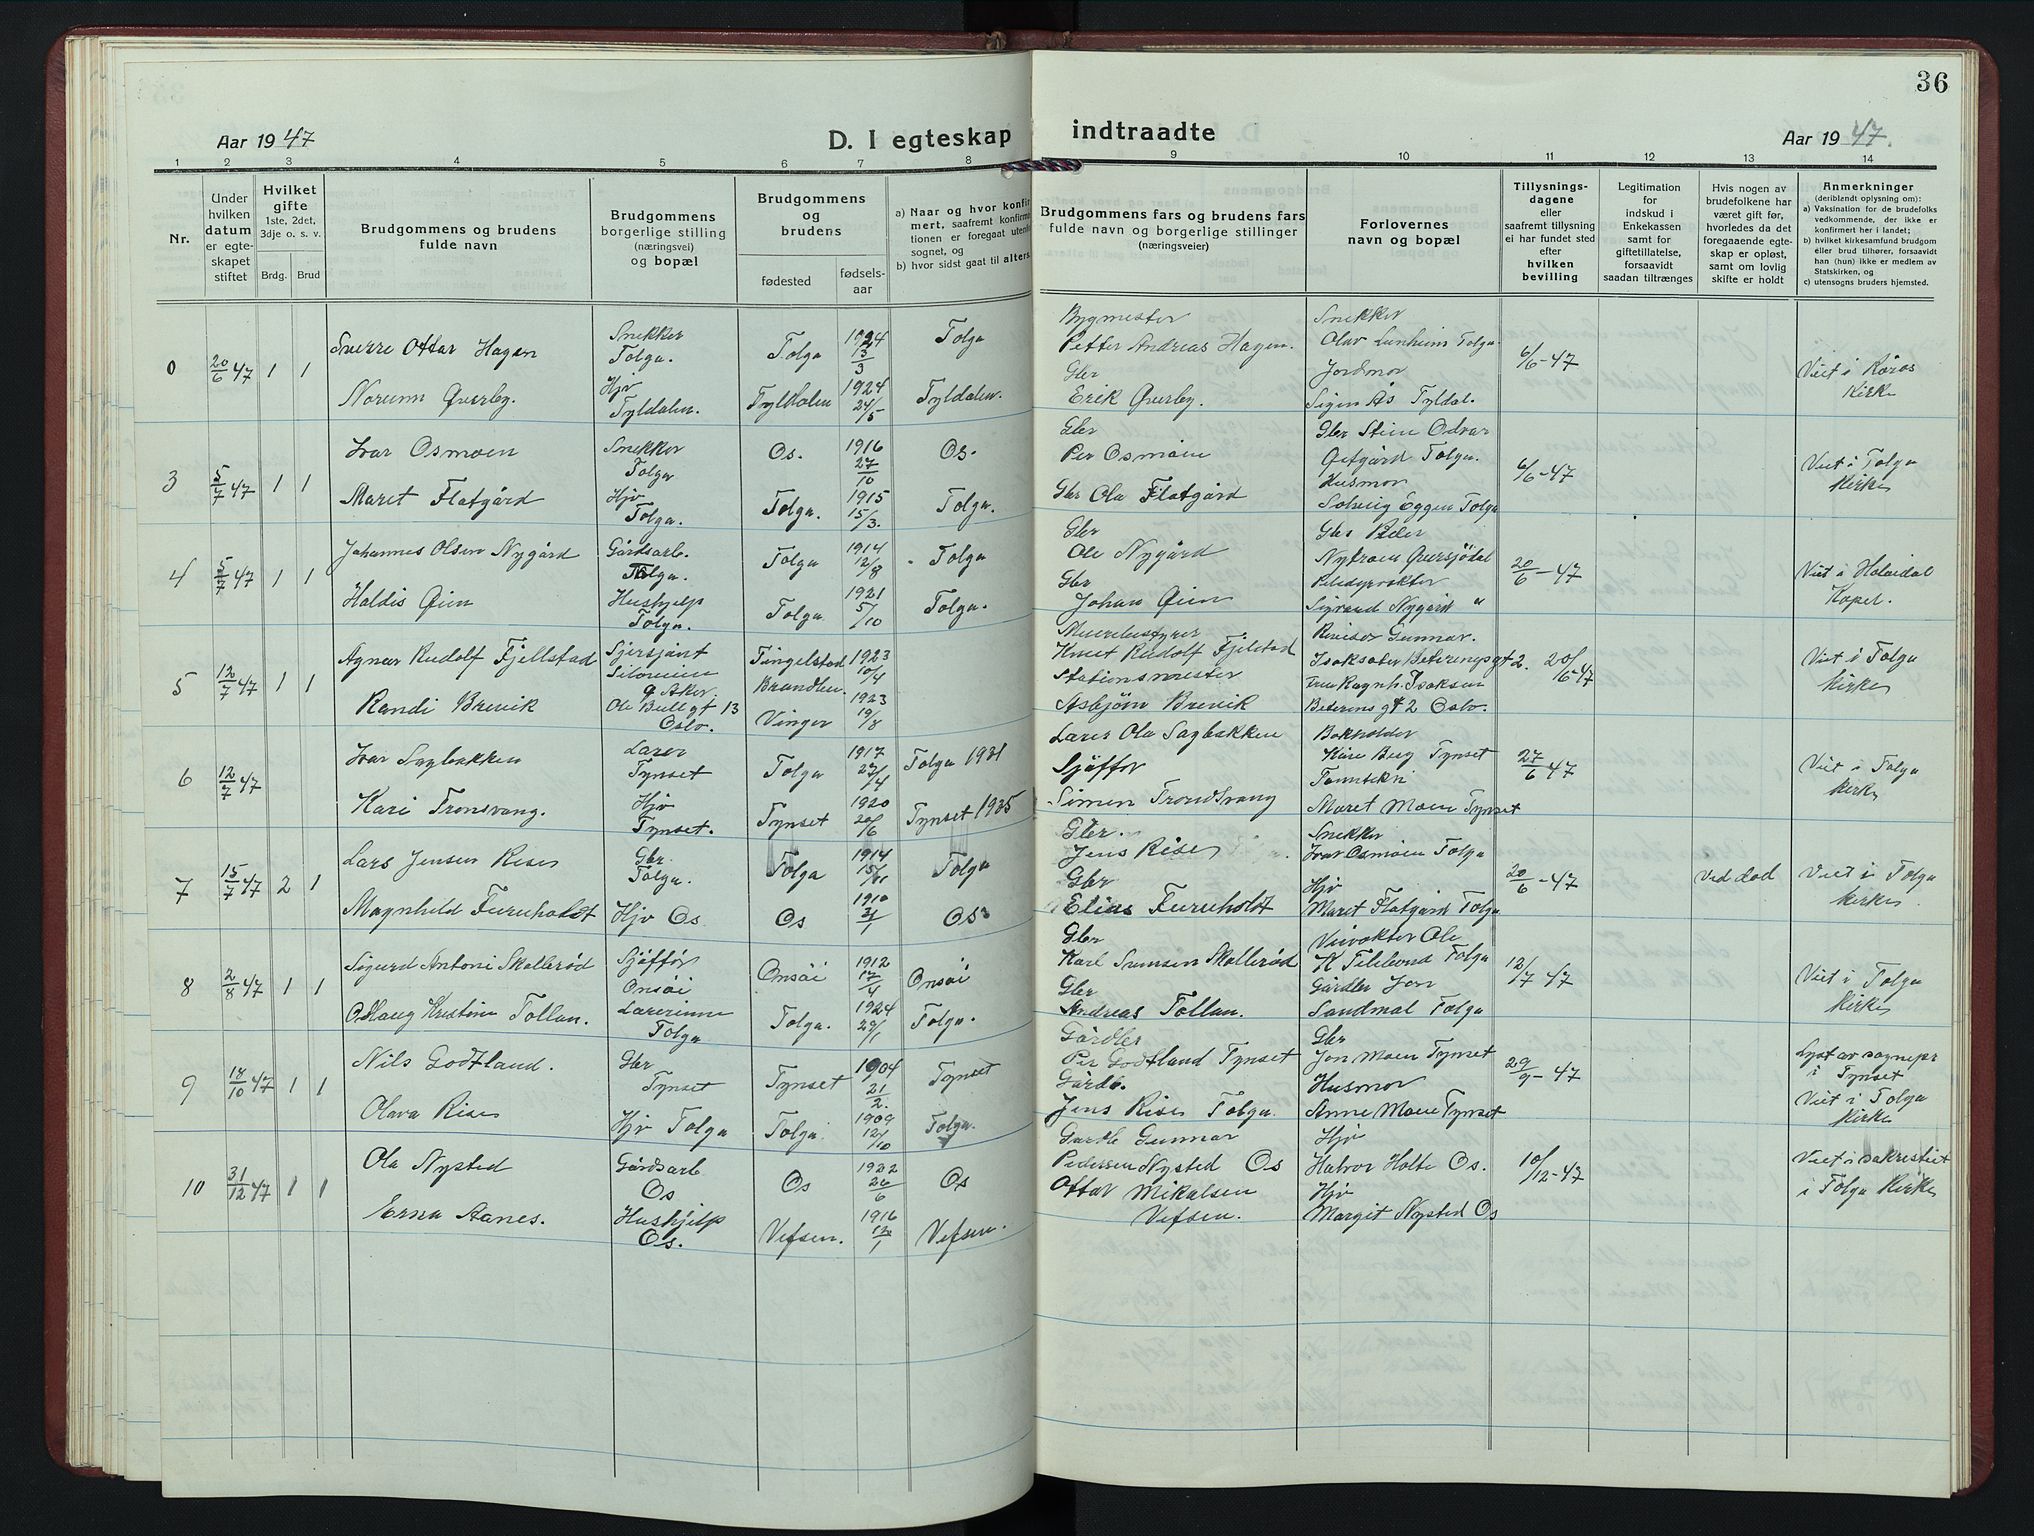 36
Aar 1947
D. I egteskap indtraadte
Aar 1947.
1 2 3 4 5 6 7 8 9 10 11 12 13 14
Nr.
Under hvilken datum er egteskapet stiftet
Hvilket gifte
1ste, 2det, 3dje o. s. v.
Brdg. Brud
Brudgommens og brudens fulde navn
Brudgommens borgerlige stilling (næringsvei) og bopæl
Brudgommens og brudens
fødested
fødsels-aar
a) Naar og hvor konfirmert, saafremt konfirmationen er foregaat utenfor sognet, og
b) hvor sidst gaat til alters.
Brudgommens fars og brudens fars fulde navn og borgerlige stillinger (næringsveier)
Forlovernes navn og bopæl
Tillysnings-dagene eller saafremt tillysning ei har fundet sted efter hvilken bevilling
Legitimation for indskud i Enkekassen samt for giftetillatelse, forsaavidt saadan tiltrænges
Hvis nogen av brudefolkene har været gift før, hvorledes da det foregaaende egteskap er opløst, samt om lovlig skifte er holdt
Anmerkninger
(deriblandt oplysning om):
a) Vaksination for de brudefolks vedkommende, der ikke er konfirmert her i landet;
b) hvilket kirkesamfund brudgom eller brud tilhører, forsaavidt han (hun) ikke er medlem av Statskirken, og
c) utensogns bruders hjemsted.
0 20/6 47 1 1
Sverre Ottar Hagen
Snekker Tolga.
Tolga 1924 13/3 Tolga
Bygmester Petter Andreas Hagen.
Snekker Olav Tolga.
6/6-47
Viet i Røros Kirke
Norunn Øverby.
Hjv Tyldalen.
Tyldalen 1924 24/5 Tyldalen.
Gbr Erik Øverby.
Jordmor Signe Ås Tyldal.
3 5/7 47 1 1
Ivar Osmoen
Snekker Tolga
Os. 1916 27/10 Os.
Gbr Per Osmoen
Gbr Stein Odvar Tolga.
6/6-47
Viet i Tolga Kirke
Maret Flatgård
Hjv Tolga.
Tolga. 1915 15/3. Tolga.
Gbr Ola Flatgård
Husmor Solveig Eggen Tolga
4 5/7 47 1 1
Johannes Olsen Nygård
Gårdsarb. Tolga.
Tolga 1914 12/8 Tolga
Gbr Ole Nygård
Gbr Peder Nytrøen Øversjødal
20/6-47
Viet i Holøidal Kapel.
Haldis Øien
Hushjelp Tolga.
Tolga 1921 5/10 Tolga.
Gbr Johan Øien
Pelsdyrrøkter Sigvand Nygård "
5 12/7 47 1 1
Agnar Rudolf Fjellstad
Sjersjant
Aker.
Tingelstad Brandbu. 1923 10/4
Knut Rudolf Fjelstad
Revisor Gunnar Isaksater 2.
20/6-47
Viet i Tolga Kirke
Randi Brevik
Ole Bullgt 13 Oslo.
Vinger 1923 19/8
Stationsmester Asbjørn Brevik
Fru Ragnh. Isaksen gt 2 Oslo.
6 12/7 47
Ivar Sagbakken
Lærer Tynset
Tolga 1917 27/4 Tolga 1931
Lærer Ola Sagbakken
Bokholder Kåre Berg Tynset
27/6 47
Viet i Tolga Kirke
Kari Tronsvang.
Hjv Tynset.
Tynset 1920 20/6 Tynset 1935
Sjåffør Simen Trondsvang
Maret Moen Tynset
7 15/7 47 2 1
Lars Jensen Rise
Gbr. Tolga.
Tolga 1914 Tolga
Gbr. Jens Rise
Snekker Ivar Osmoen Tolga
20/6-47
Ved død
Viet i Tolga Kirke
Magnhild Furuholdt
Hjv Os
Os 1910 Os
Gbr Elias Furuholdt
Hjv Maret Flatgård Tolga
8 2/8 47 1 1
Sigurd Antoni Skallerød
Sjåffør Onsøi
Onsøi 1912 17/4 Onsøi
Gbr Karl Skallerød
Veivokter Ole K Tolga
12/7 47
Viet i Tolga Kirke
Odlaug Kristine Tollan.
Lærerinne Tolga
Tolga. 1924 29/1 Tolga.
Gbr Andreas Tollan.
Gårdbr Jon Sandmal Tolga
9 18/10 47 1 1
Nils Godtland.
Gbr Tynset
Tynset 1904 21/2. Tynset
Gårdbr Per Godtland Tynset
Gbr Jon Moen Tynset
29/9-47
Lyst av sognepr i Tynset
Viet i Tolga Kirke
Olava Rise
Hjv Tolga
Tolga 1909 12/10 Tolga.
Gårdb. Jens Rise Tolga.
Husmor Anne Moen Tynset
10 31/12 47 1 1
Ola Nysted
Gårdsarb Os
Os 1922 26/6 Os
Gardb Gunnar Pedersen Nysted Os
Hjv Halvor Holte Os.
10/12-47
Viet i sakrestiet i Tolga Kirke
Erna Aanes.
Hushjelp Os.
Vefsen. 1916 Vefsen.
Ottar Mikalsen Vefsen.
Hjv Margit Nysted Os